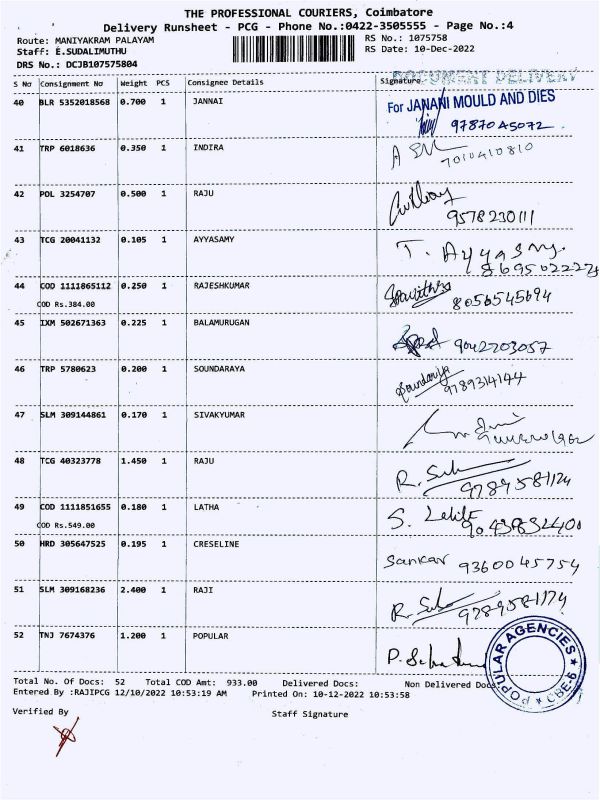 THE PROFESSIONAL COURIERS, Coimbatore
Delivery Runsheet - PCG - Phone No.:0422-3505555 - Page No.:4
Route: MANIYAKRAM PALAYAM RS No.: 1075758
Staff: E.SUDALIMUTHU RS Date: 10-Dec-2022
DRS No.: DCJB107575804
DOCUMENT DELIVERY
S No Consignment No Weight PCS Consignee Details Signature
40 BLR 5352018568 0.700 1 JANNAI For JANANI MOULD AND DIES
97870 45072
41 TRP 6018636 0.350 1 INDIRA
7010410810
42 POL 3254707 0.500 1 RAJU
9578230111
43 TCG 20041132 0.105 1 AYYASAMY T. Ayyasamy.
8695022224
44 COD 1111865112 0.250 1 RAJESHKUMAR 8056545694
COD Rs.384.00
45 IXM 502671363 0.225 1 BALAMURUGAN
9042703057
46 TRP 5780623 0.200 1 SOUNDARAYA Soundariya
9789314144
47 SLM 309144861 0.170 1 SIVAKYUMAR
48 TCG 40323778 1.450 1 RAJU R.
9789581174
49 COD 1111851655 0.180 1 LATHA S.
COD Rs.549.00
50 HRD 305647525 0.195 1 CRESELINE Sankar 9360045754
51 SLM 309168236 2.400 1 RAJI R. 9789581174
52 TNJ 7674376 1.200 1 POPULAR P.
POPULAR AGENCIES ★ CBE-9 ★
Total No. Of Docs: 52 Total COD Amt: 933.00 Delivered Docs: Non Delivered Docs
Entered By :RAJIPCG 12/10/2022 10:53:19 AM Printed On: 10-12-2022 10:53:58
Verified By Staff Signature